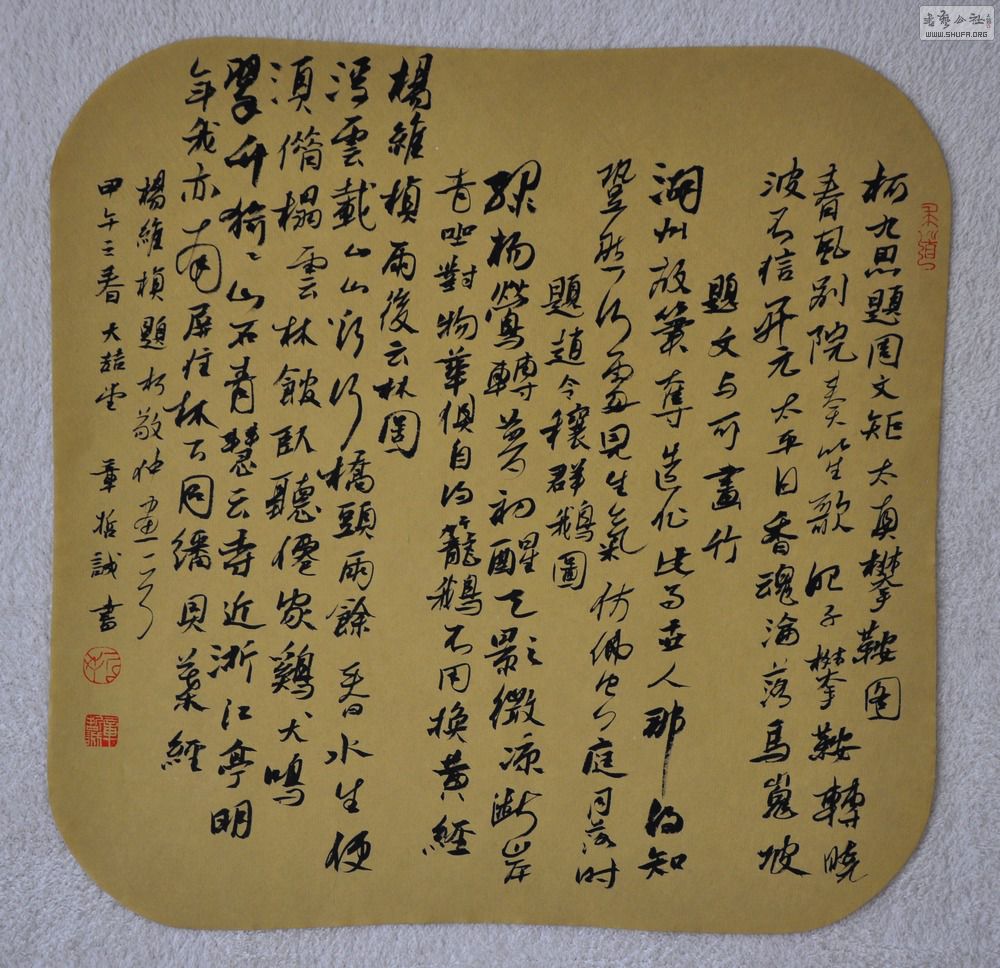 柯九思題周文矩太真攀鞍圖
春風別院奏笙歌妃子攀鞍轉曉
波不信開元太平日香魂淪落馬嵬坡
題文与可畫竹
湖州放筆奪造化此事世人那得知
跫然何處見生氣仿佛空庭月落時
題趙令穰群鵝圖
綠楊鶯轉夢初醒天影微涼漸岸
青坐對物華俱自得籠鵝不用換黃經
楊維楨雨後云林圖
浮雲載山山欲行橋頭雨餘春水生便
須借榻雲林館臥聽僊家鷄犬鳴
翠竹猗猗山石青慧云寺近浙江亭明
年我亦南屏住林下同繙貝葉經
楊維楨題柯敬仲畫一首
甲午之春大喆堂 章哲誠書
書藝公社
WWW.SHUFA.ORG